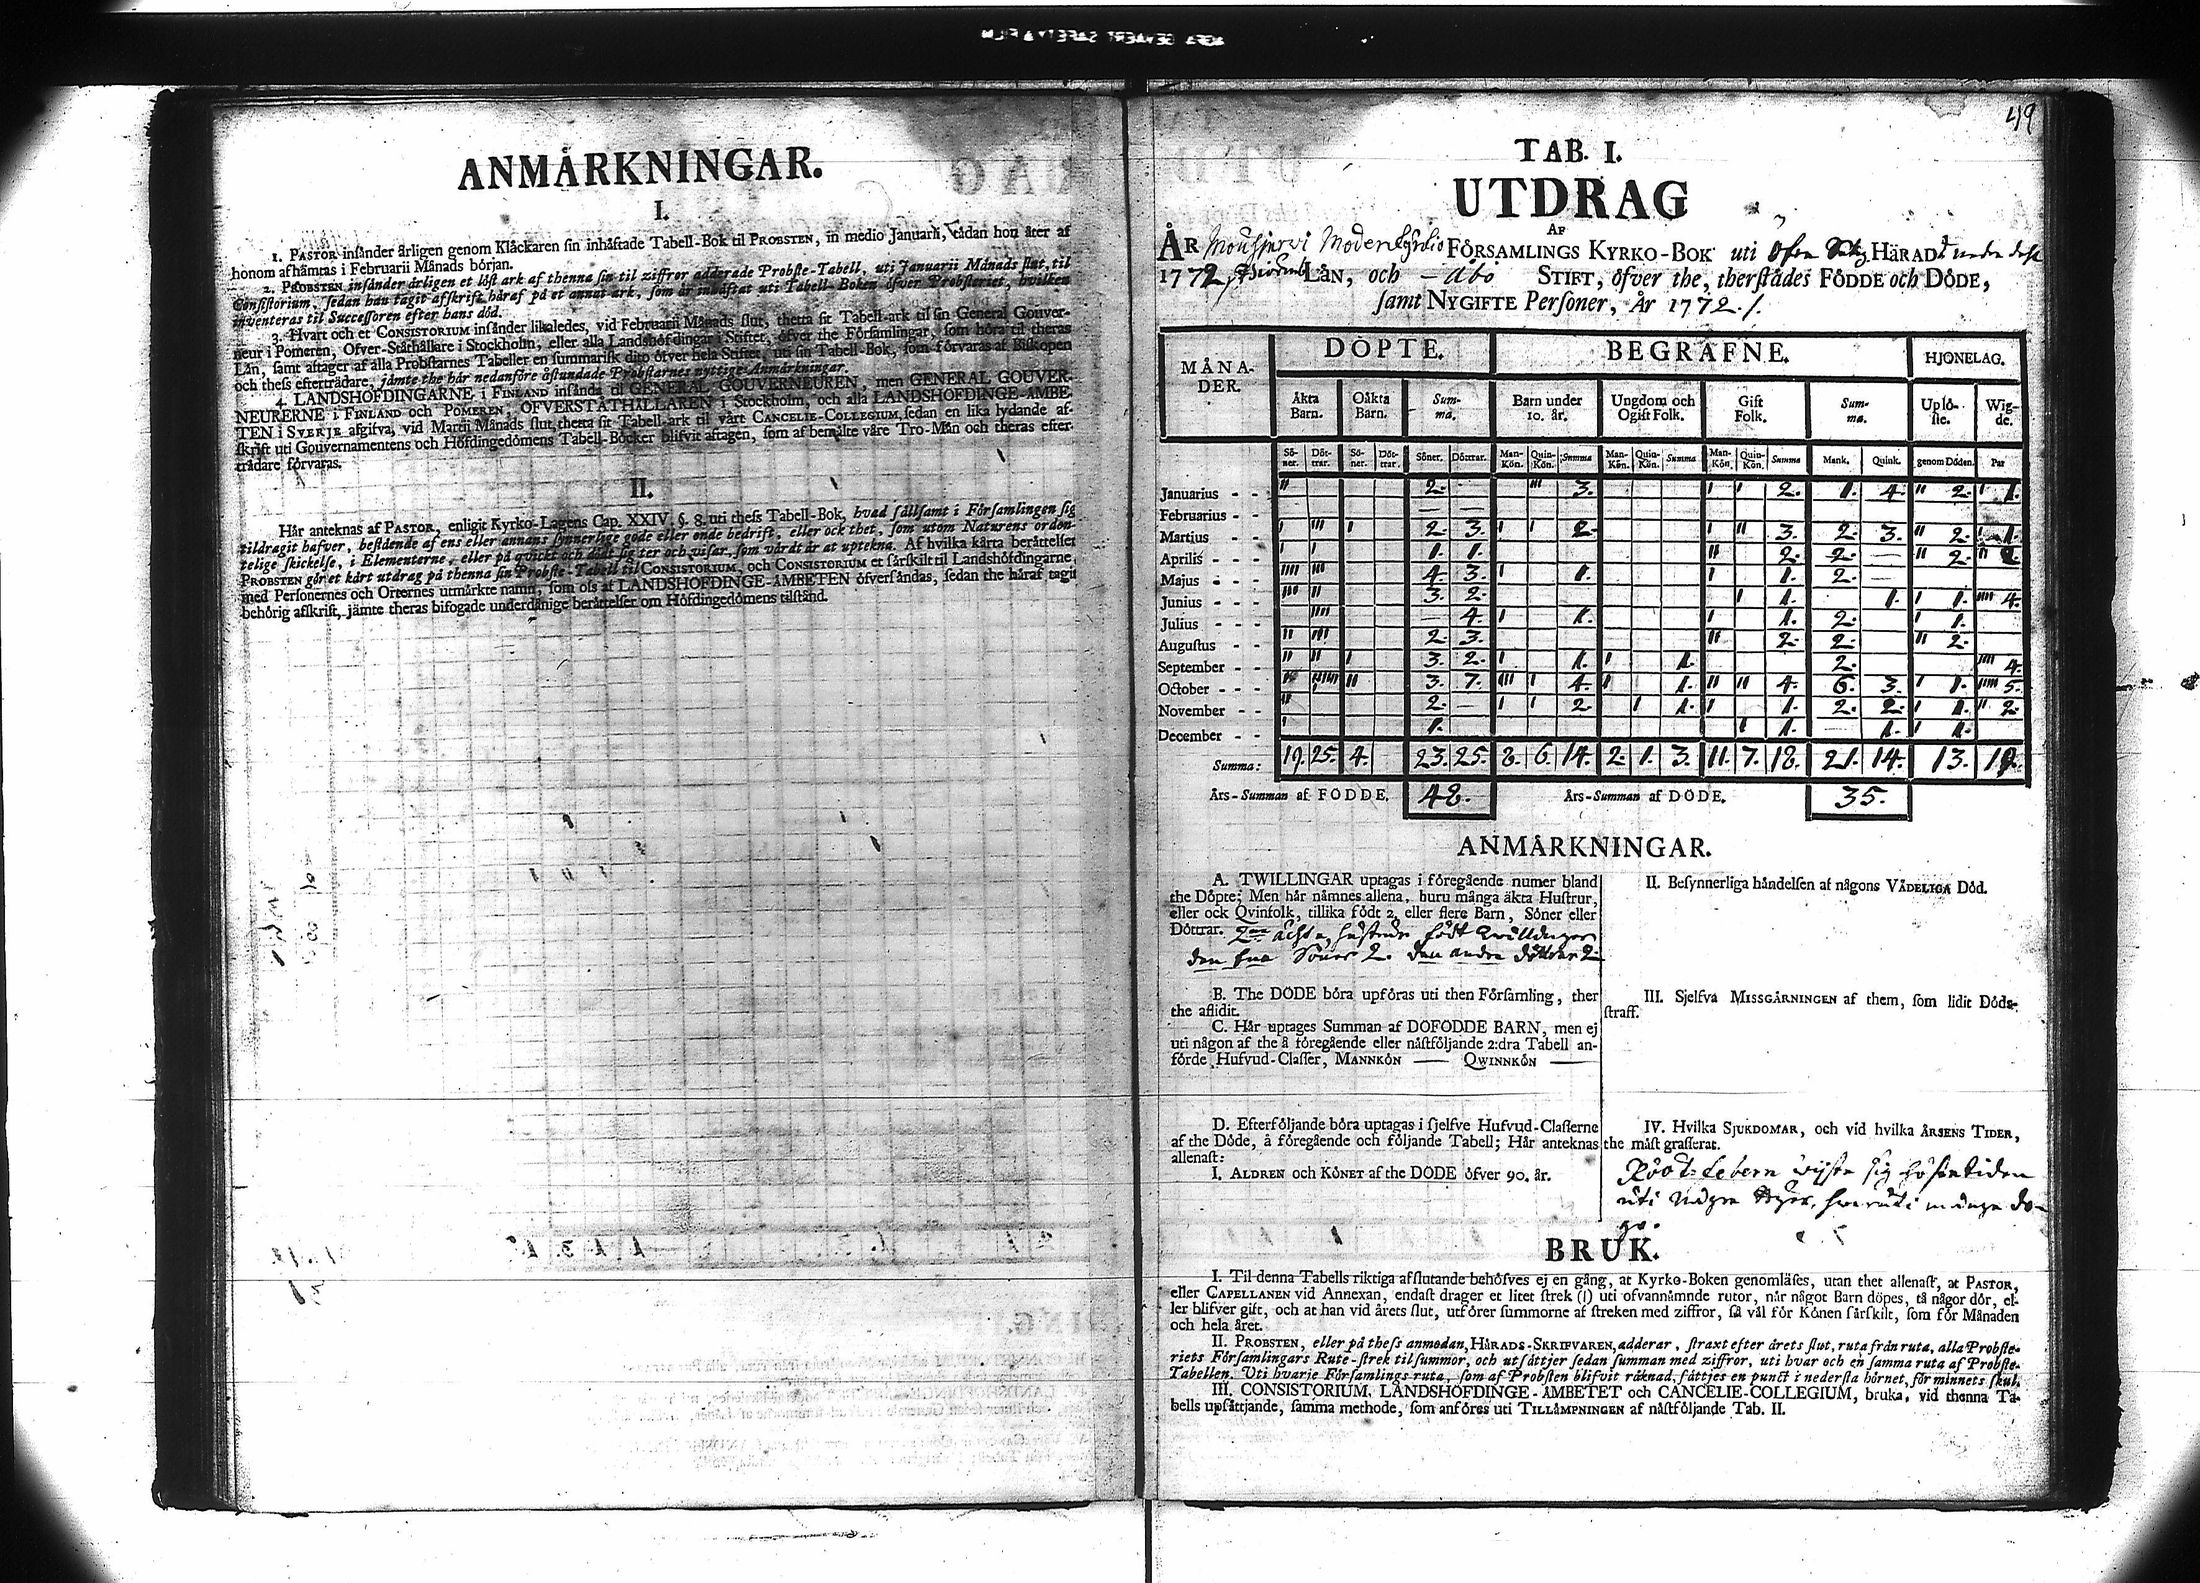 ANMÅRKNINGAR.
I.
1. PASTOR insånder årligen genom Klåckaren sin inhåftade Tabell-Bok til PROBSTEN, in medio Januarii, sådan hon åter af
honom afhåmtas i Februarii Månads början.
2. PROBSTEN insånder årligen et löst ark af thenna sin til ziffror adderade Probste-Tabell, uti Januarii Månads slut, til
Consistorium, sedan han tagit afskrift håraf på et annat ark, som år inhåftat uti Tabell-Boken öfver Probsteriet, hvilken
inventeras til Successoren efter hans död.
3. Hvart och et CONSISTORIUM insånder likaledes, vid Februarii Månads slut, thetta sit Tabell-ark til sin General Gouver-
neur i Pomeren, Öfver-Ståthållare i Stockholm, eller alla Landshöfdingar i Stiftet, öfver the Församlingar, som höra til theras
Lån, samt aftager af alla Probstarnes Tabeller en summarisk dito öfver hela Stiftet, uti sin Tabell-Bok, som förvaras af Biskopen
och thess eftertrådare, jåmte the hår nedanföre åstundade Probstarnes nyttige Anmårkningar.
4. LANDSHÖFDINGARNE i FINLAND insånda til GENERAL GOUVERNEUREN, men GENERAL GOUVER-
NEURERNE i FINLAND och POMEREN, ÖFVERSTÅTHÅLLAREN i Stockholm, och alla LANDSHÖFDINGE-ÅMBE-
TEN i SVERJE afgifva, vid Martii Månads slut, thetta sit Tabell-ark til vårt CANCELIE-COLLEGIUM, sedan en lika lydande af-
skrift uti Gouvernamentens och Höfdingedömens Tabell-Böcker blifvit aftagen, som af bemålte våre Tro-Mån och theras efter-
trådare förvaras.
II.
Hår anteknas af PASTOR, enligit Kyrko-Lagens Cap. XXIV. §. 8. uti thess Tabell-Bok, hvad sållsamt i Församlingen sig
tildragit hafver, bestående af ens eller annans synnerlige gode eller onde bedrift, eller ock thet, som utom Naturens orden-
telige skickelse, i Elementerne, eller på qvickt och dödt sig ter och visar, som vårdt år at uptekna. Af hvilka kårta beråttelser
PROBSTEN gör et kårt utdrag på thenna sin Probste-Tabell til CONSISTORIUM, och CONSISTORIUM et sårskilt til Landshöfdingarne,
med Personernes och Orternes utmårkte namn, som oss af LANDSHÖFDINGE-ÅMBETEN öfversåndas, sedan the håraf tagit
behörig afskrift, jåmte theras bifogade underdånige beråttelser om Höfdingedömens tilstånd.
49
TAB. I.
UTDRAG
AF
ÅR Mouhijervi Moderkyrkio FÖRSAMLINGS KYRKO-BOK uti Öfre HÅRAD
1772. LÅN, och — Åbo STIFT, öfver the, therstådes FÖDDE och DÖDE,
samt NYGIFTE Personer, År 1772.
MÅNA-
DER.
DÖPTE. BEGRAFNE. HJONELAG.
Åkta Barn. Oåkta Barn. Sum-ma. Barn under 10. år. Ungdom och Ogift Folk. Gift Folk. Sum-ma. Uplö-ste. Wig-de.
Sö-ner. Döt-trar. Sö-ner. Döt-trar. Söner. Döttrar. Man-Kön. Quin-Kön. Summa Man-Kön. Quin-Kön. Summa Man-Kön. Quin-Kön. Summa Mank. Quink. genom Döden. Par
Januarius - - 11 2. 111 3. 1 1 2. 1. 4. 11 2. 1 1.
Februarius - -
Martius - - 1 111 1 2. 3. 1 1 2. 1 11 3. 2. 3. 11 2. 1.
Aprilis - - 1 1 1. 1. 11 2. 2. — 11 2. 11 2.
Majus - - 1111 111 4. 3. 1 1. 1 1. 2. —
Junius - - 111 11 3. 2. 1 1. 1. 1 1. 1111 4.
Julius - - 1111 — 4. 1 1. 1 1. 2. 1 1.
Augustus - - 11 111 2. 3. 11 2. 2. 11 2.
September - - 11 11 1 3. 2. 1 1. 1 1. 2. 1111 4.
October - - - 11 3. 7. 111 1 4. 1 1. 11 11 4. 6. 3. 1 1. 11111 5.
November - - 11 2. — 1 1 2. 1 1. 1 1. 2. 2. 1 1. 11 2.
December - - 1 1. 1 1. 1. 1 1.
Summa: 19. 25. 4. 23. 25. 8. 6. 14. 2. 1. 3. 11. 7. 18. 21. 14. 13. 19.
Års-Summan af FÖDDE. 48. Års-Summan af DÖDE. 35.
ANMÅRKNINGAR.
A. TWILLINGAR uptagas i föregående numer bland
the Döpte; Men hår nåmnes allena, huru många åkta Hustrur,
eller ock Qvinfolk, tillika födt 2, eller flere Barn, Söner eller
Döttrar. 2ne ächta hustrur födt twillingar
den ena Söner 2. den andra döttrar 2.
B. The DÖDE böra upföras uti then Församling, ther
the aflidit.
C. Hår uptages Summan af DÖFÖDDE BARN, men ej
uti någon af the å föregående eller nåstföljande 2:dra Tabell an-
förde Hufvud-Classer, MANNKÖN — QWINNKÖN —
D. Efterföljande böra uptagas i sjelfve Hufvud-Classerne
af the Döde, å föregående och följande Tabell; Hår anteknas
allenast:
I. ALDREN och KÖNET af the DÖDE öfver 90. år.
II. Besynnerliga håndelsen af någons VÅDELIGA Död.
III. Sjelfva MISSGÅRNINGEN af them, som lidit Döds-
straff.
IV. Hvilka SJUKDOMAR, och vid hvilka ÅRSENS TIDER,
the måst grasserat.
Röot-febern wijste sig höstetiden
uti någre byar, hwaruti många do-
go.
BRUK.
I. Til denna Tabells riktiga afslutande behöfves ej en gång, at Kyrko-Boken genomlåses, utan thet allenast, at PASTOR,
eller CAPELLANEN vid Annexan, endast drager et litet strek (1) uti ofvannåmnde rutor, når något Barn döpes, tå någor dör, el-
ler blifver gift, och at han vid årets slut, utförer summorne af streken med ziffror, så vål för Könen sårskilt, som för Månaden
och hela året.
II. PROBSTEN, eller på thess anmodan, HÅRADS-SKRIFVAREN, adderar, straxt efter årets slut, ruta från ruta, alla Probste-
riets Församlingars Rute-strek til summor, och utsåttjer sedan summan med ziffror, uti hvar och en samma ruta af Probste-
Tabellen. Uti hvarje Församlings ruta, som af Probsten blifvit råknad, såttjes en punct i nedersta hörnet, för minnets skul.
III. CONSISTORIUM, LANDSHÖFDINGE-ÅMBETET och CANCELIE-COLLEGIUM, bruka, vid thenna Ta-
bells upsåttjande, samma methode, som anföres uti TILLÅMPNINGEN af nåstföljande Tab. II.